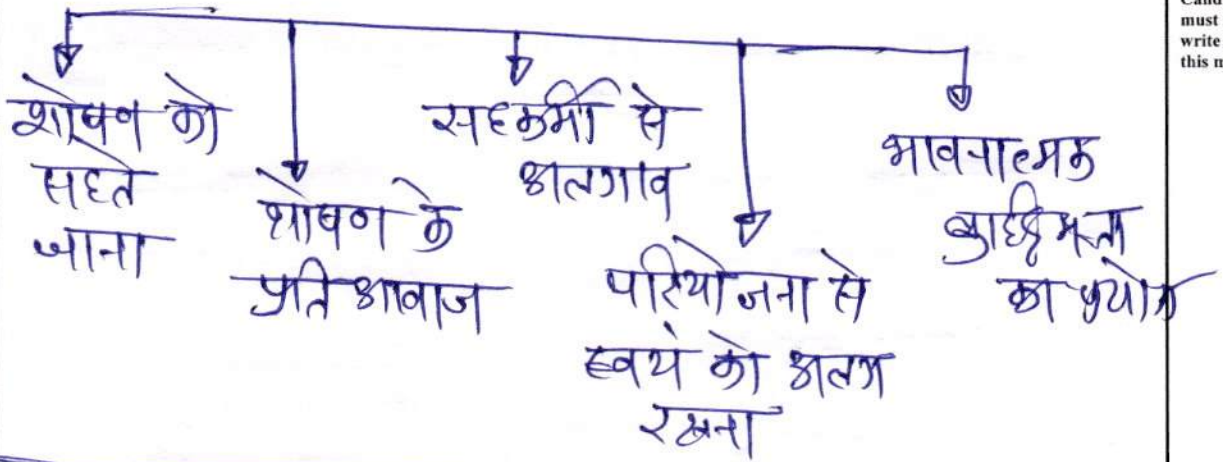 Cand
must
write
this m
शोषण को
सहते
जाना
शोषण के
प्रति आवाज
सहकर्मी से
अलगाव
परियोजना से
स्वयं को अलग
रखना
भावनात्मक
बुद्धिमत्ता
का प्रयोग